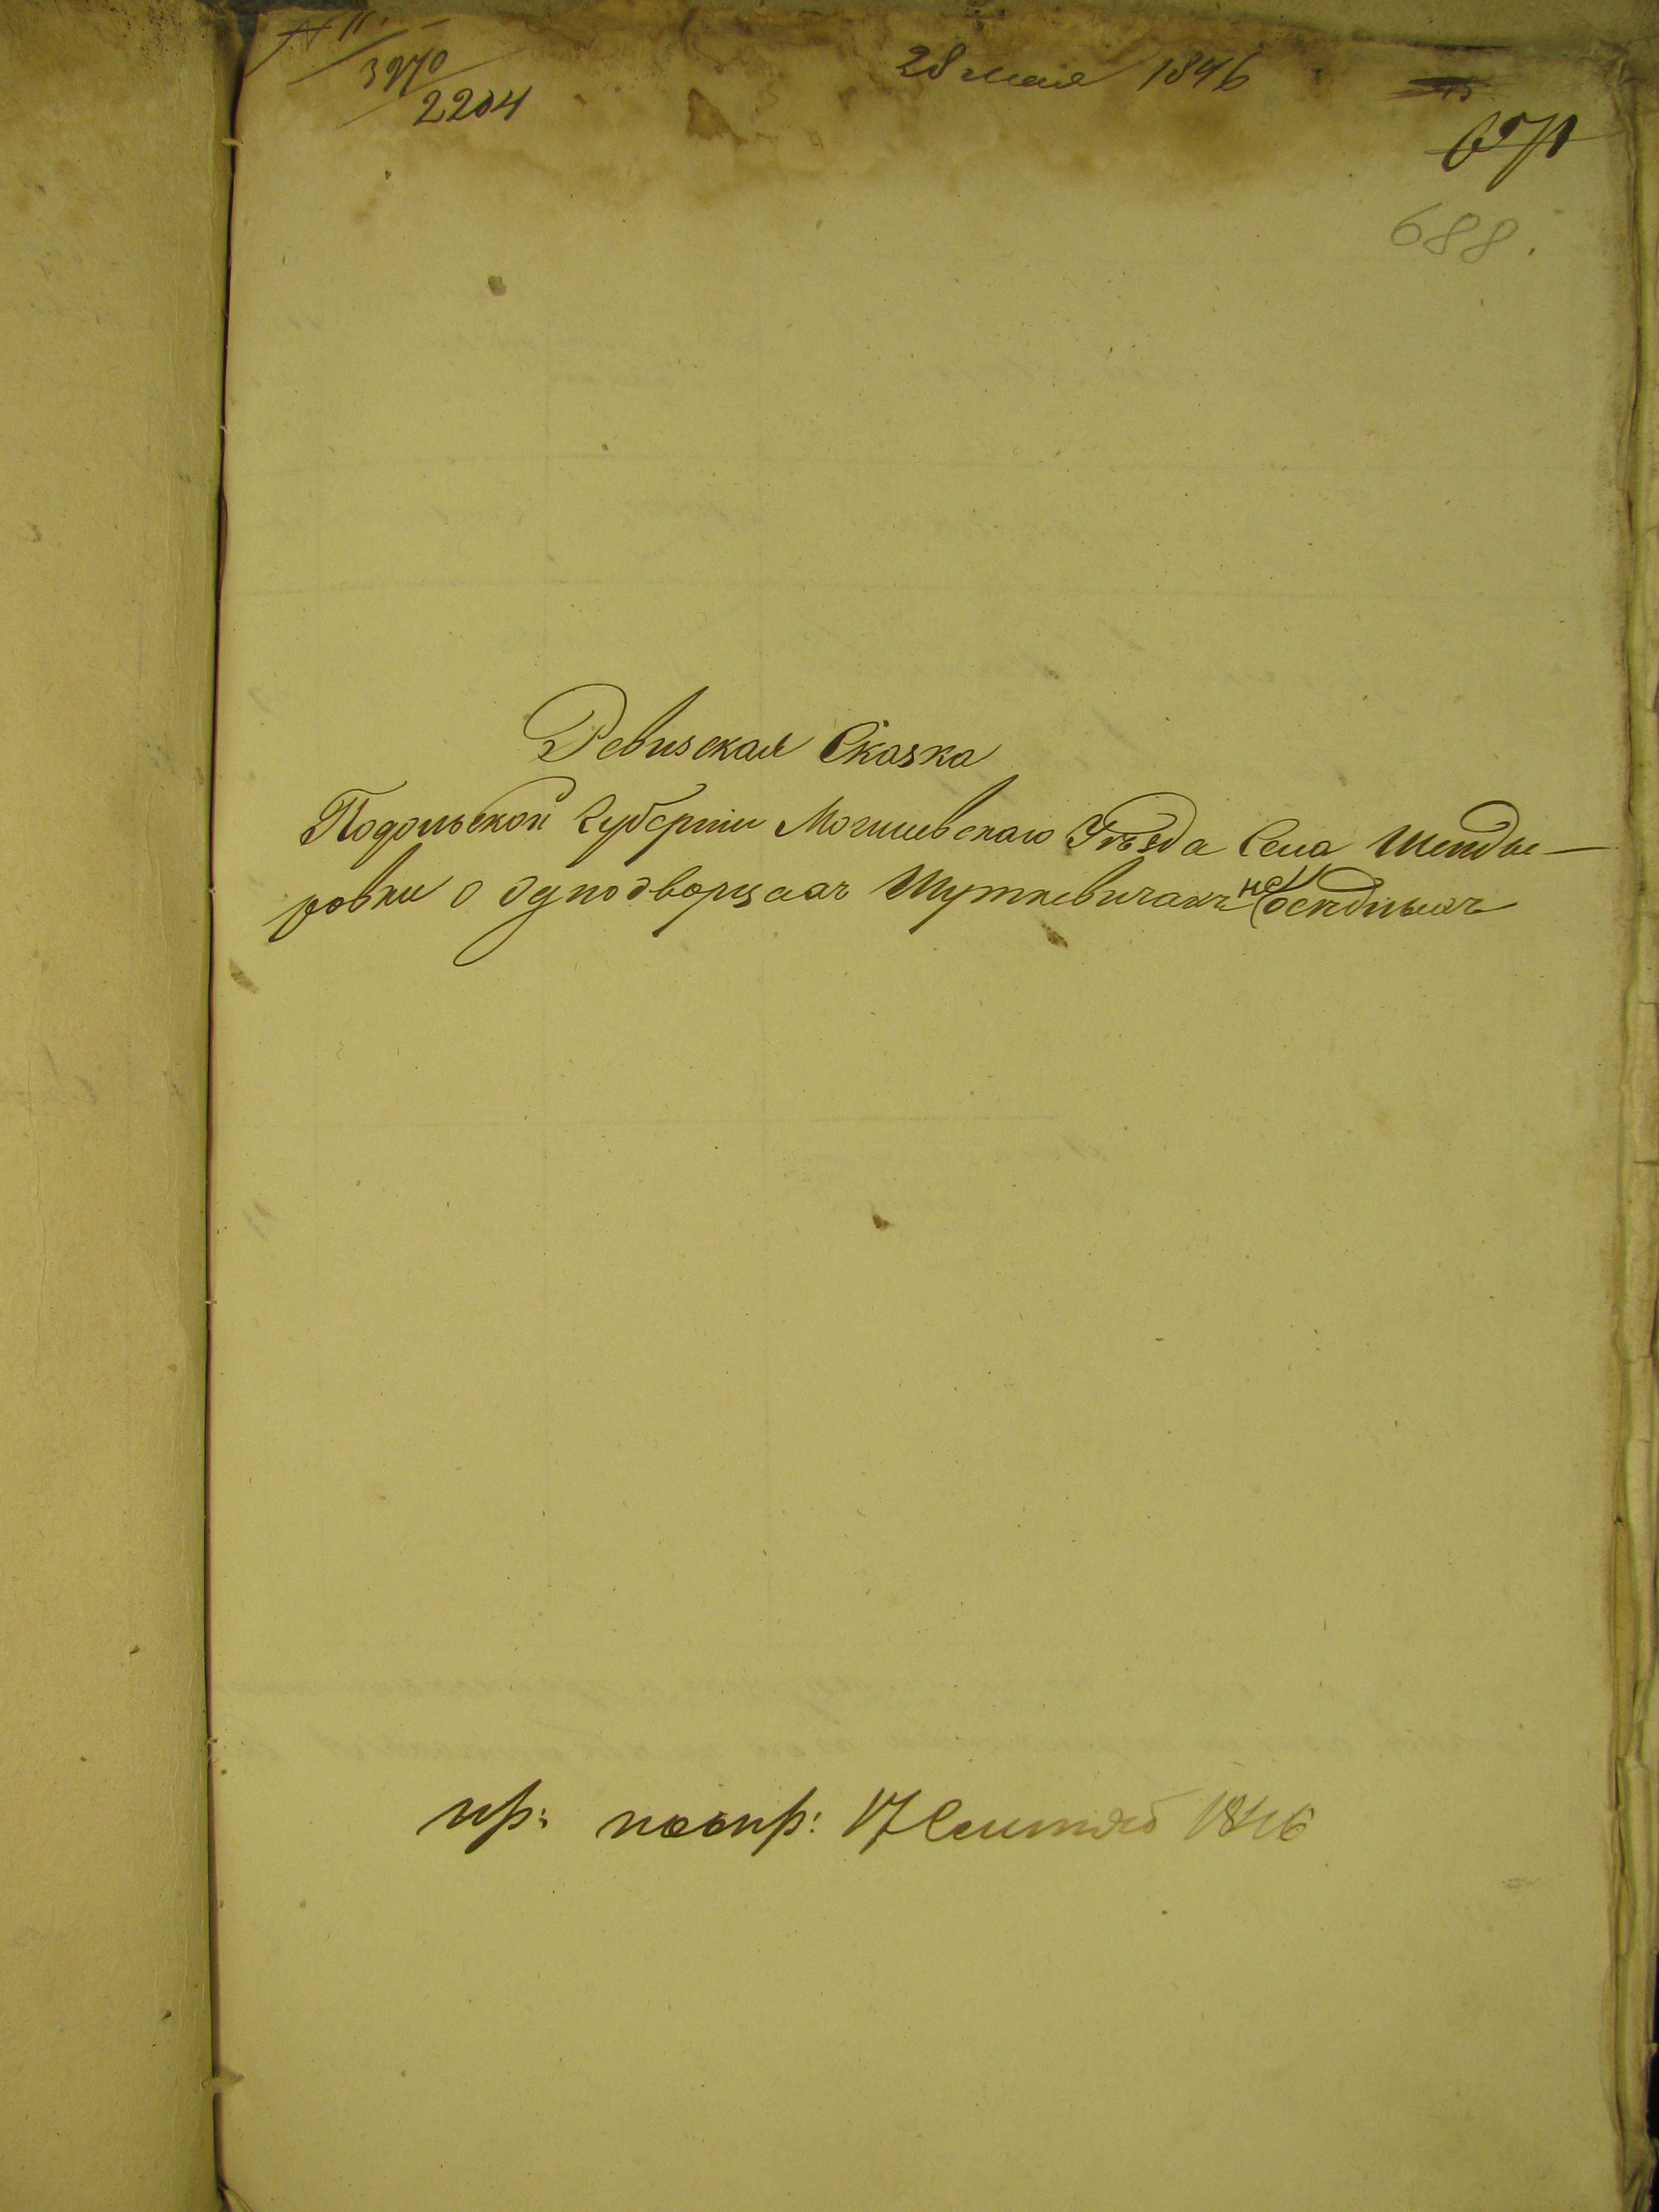 3970
2204
28 мая 1846
688.
Ревизская Сказка
Подольской Губернии Могилевскаго Уѣзда Села Шенды-
ровки о Однодворцахъ Шуткевичахъ не Осѣдлыхъ
пр: 17 Сентяб 1846